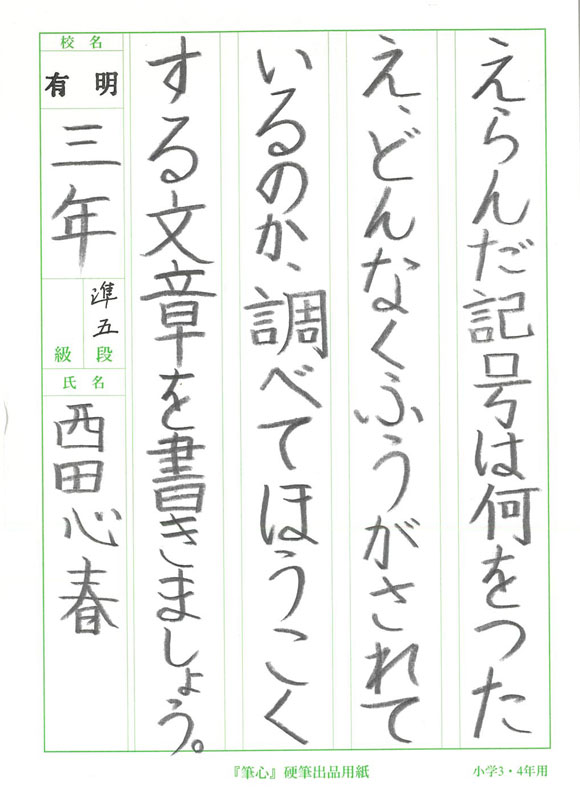 えらんだ記号は何をつた
え、どんなくふうがされて
いるのか、調べてほうこく
する文章を書きましょう。
校名
有明
三年
準五段
級
氏名
西田心春
『筆心』硬筆出品用紙
小学3・4年用